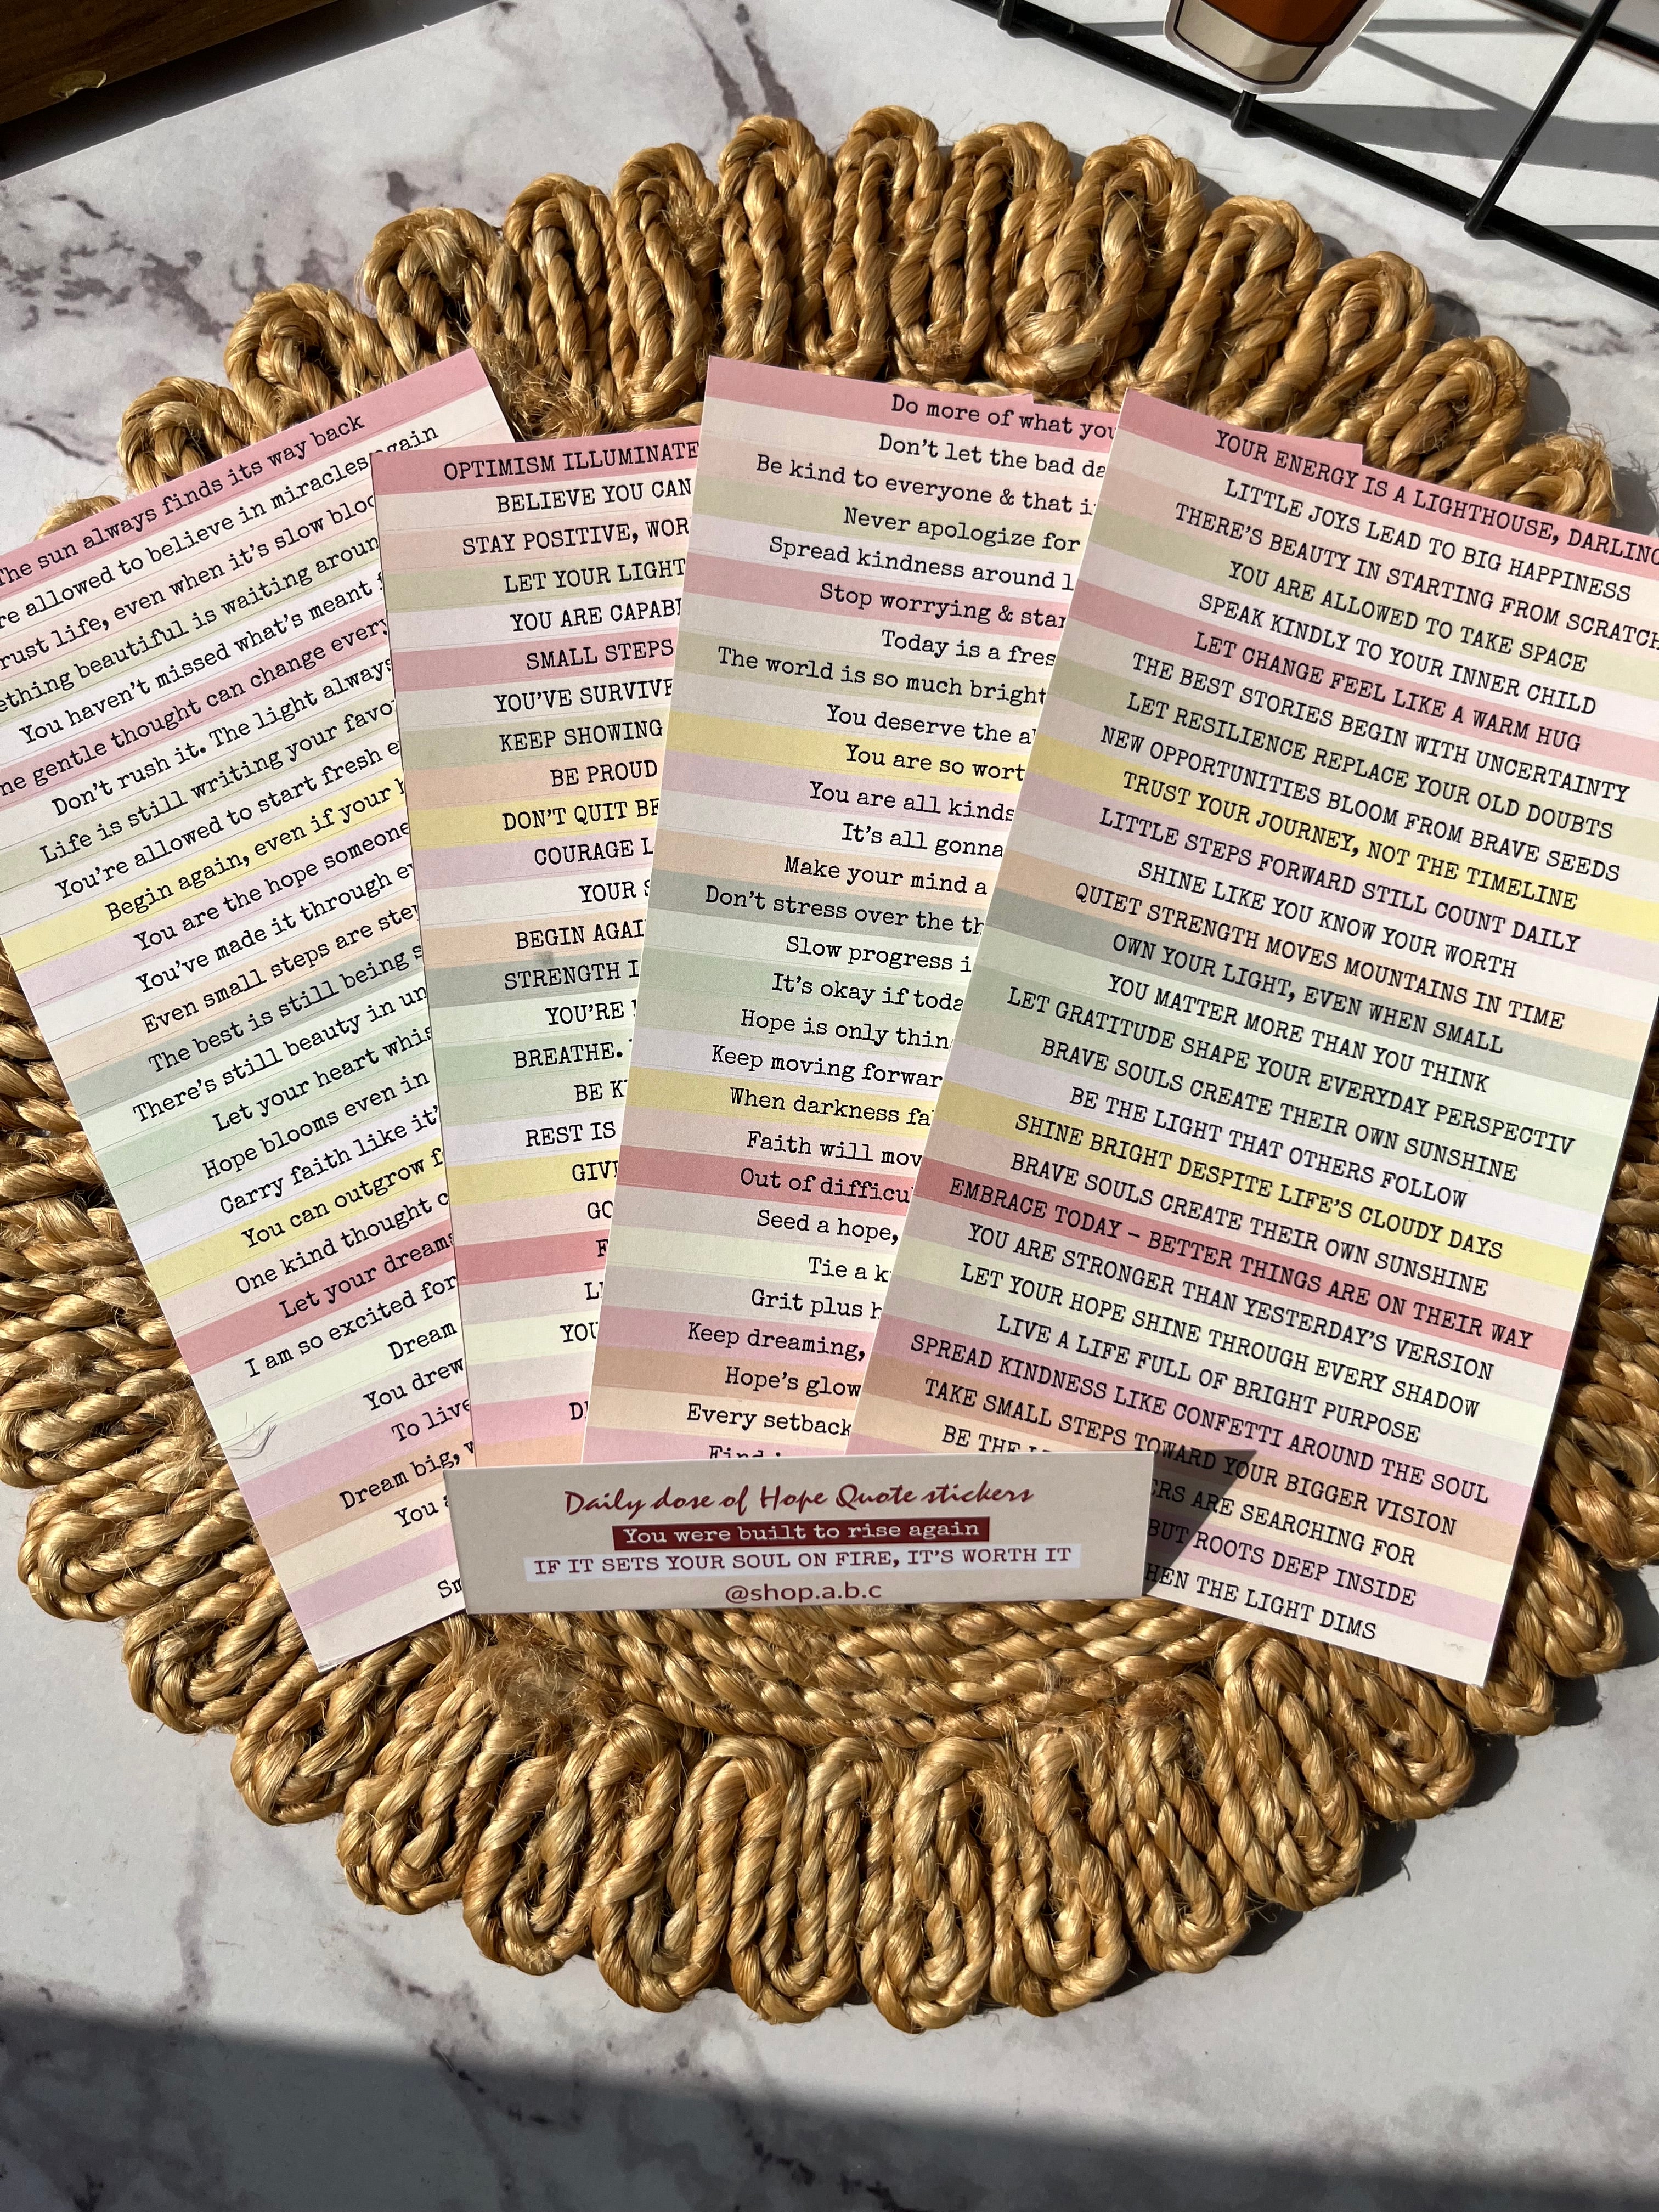 The sun always finds its way back
re allowed to believe in miracles again
rust life, even when it's slow bloo
ething beautiful is waiting aroun
You haven't missed what's meant f
ne gentle thought can change every
Don't rush it. The light always
Life is still writing your favo
You're allowed to start fresh e
Begin again, even if your h
You are the hope someone
You've made it through ev
Even small steps are step
The best is still being s
There's still beauty in un
Let your heart whis
Hope blooms even in
Carry faith like it'
You can outgrow f
One kind thought c
Let your dreams
I am so excited for
Dream
You drew
To live
Dream big, w
You a
Sm
OPTIMISM ILLUMINATE
BELIEVE YOU CAN
STAY POSITIVE, WOR
LET YOUR LIGHT
YOU ARE CAPABL
SMALL STEPS
YOU'VE SURVIVE
KEEP SHOWING
BE PROUD
DON'T QUIT BE
COURAGE L
YOUR S
BEGIN AGAI
STRENGTH I
YOU'RE
BREATHE.
BE K
REST IS
GIV
GO
F
LI
YOU
DR
Do more of what you
Don't let the bad da
Be kind to everyone & that i
Never apologize for
Spread kindness around l
Stop worrying & star
Today is a fres
The world is so much bright
You deserve the a
You are so wort
You are all kinds
It's all gonna
Make your mind a
Don't stress over the th
Slow progress i
It's okay if toda
Hope is only thin
Keep moving forwar
When darkness fa
Faith will mov
Out of difficu
Seed a hope,
Tie a k
Grit plus h
Keep dreaming,
Hope's glow
Every setback
Find
YOUR ENERGY IS A LIGHTHOUSE, DARLING
LITTLE JOYS LEAD TO BIG HAPPINESS
THERE'S BEAUTY IN STARTING FROM SCRATCH
YOU ARE ALLOWED TO TAKE SPACE
SPEAK KINDLY TO YOUR INNER CHILD
LET CHANGE FEEL LIKE A WARM HUG
THE BEST STORIES BEGIN WITH UNCERTAINTY
LET RESILIENCE REPLACE YOUR OLD DOUBTS
NEW OPPORTUNITIES BLOOM FROM BRAVE SEEDS
TRUST YOUR JOURNEY, NOT THE TIMELINE
LITTLE STEPS FORWARD STILL COUNT DAILY
SHINE LIKE YOU KNOW YOUR WORTH
QUIET STRENGTH MOVES MOUNTAINS IN TIME
OWN YOUR LIGHT, EVEN WHEN SMALL
YOU MATTER MORE THAN YOU THINK
LET GRATITUDE SHAPE YOUR EVERYDAY PERSPECTIV
BRAVE SOULS CREATE THEIR OWN SUNSHINE
BE THE LIGHT THAT OTHERS FOLLOW
SHINE BRIGHT DESPITE LIFE'S CLOUDY DAYS
BRAVE SOULS CREATE THEIR OWN SUNSHINE
EMBRACE TODAY – BETTER THINGS ARE ON THEIR WAY
YOU ARE STRONGER THAN YESTERDAY'S VERSION
LET YOUR HOPE SHINE THROUGH EVERY SHADOW
LIVE A LIFE FULL OF BRIGHT PURPOSE
SPREAD KINDNESS LIKE CONFETTI AROUND THE SOUL
TAKE SMALL STEPS TOWARD YOUR BIGGER VISION
BE THE L ERS ARE SEARCHING FOR
BUT ROOTS DEEP INSIDE
HEN THE LIGHT DIMS
Daily dose of Hope Quote stickers
You were built to rise again
IF IT SETS YOUR SOUL ON FIRE, IT'S WORTH IT
@shop.a.b.c